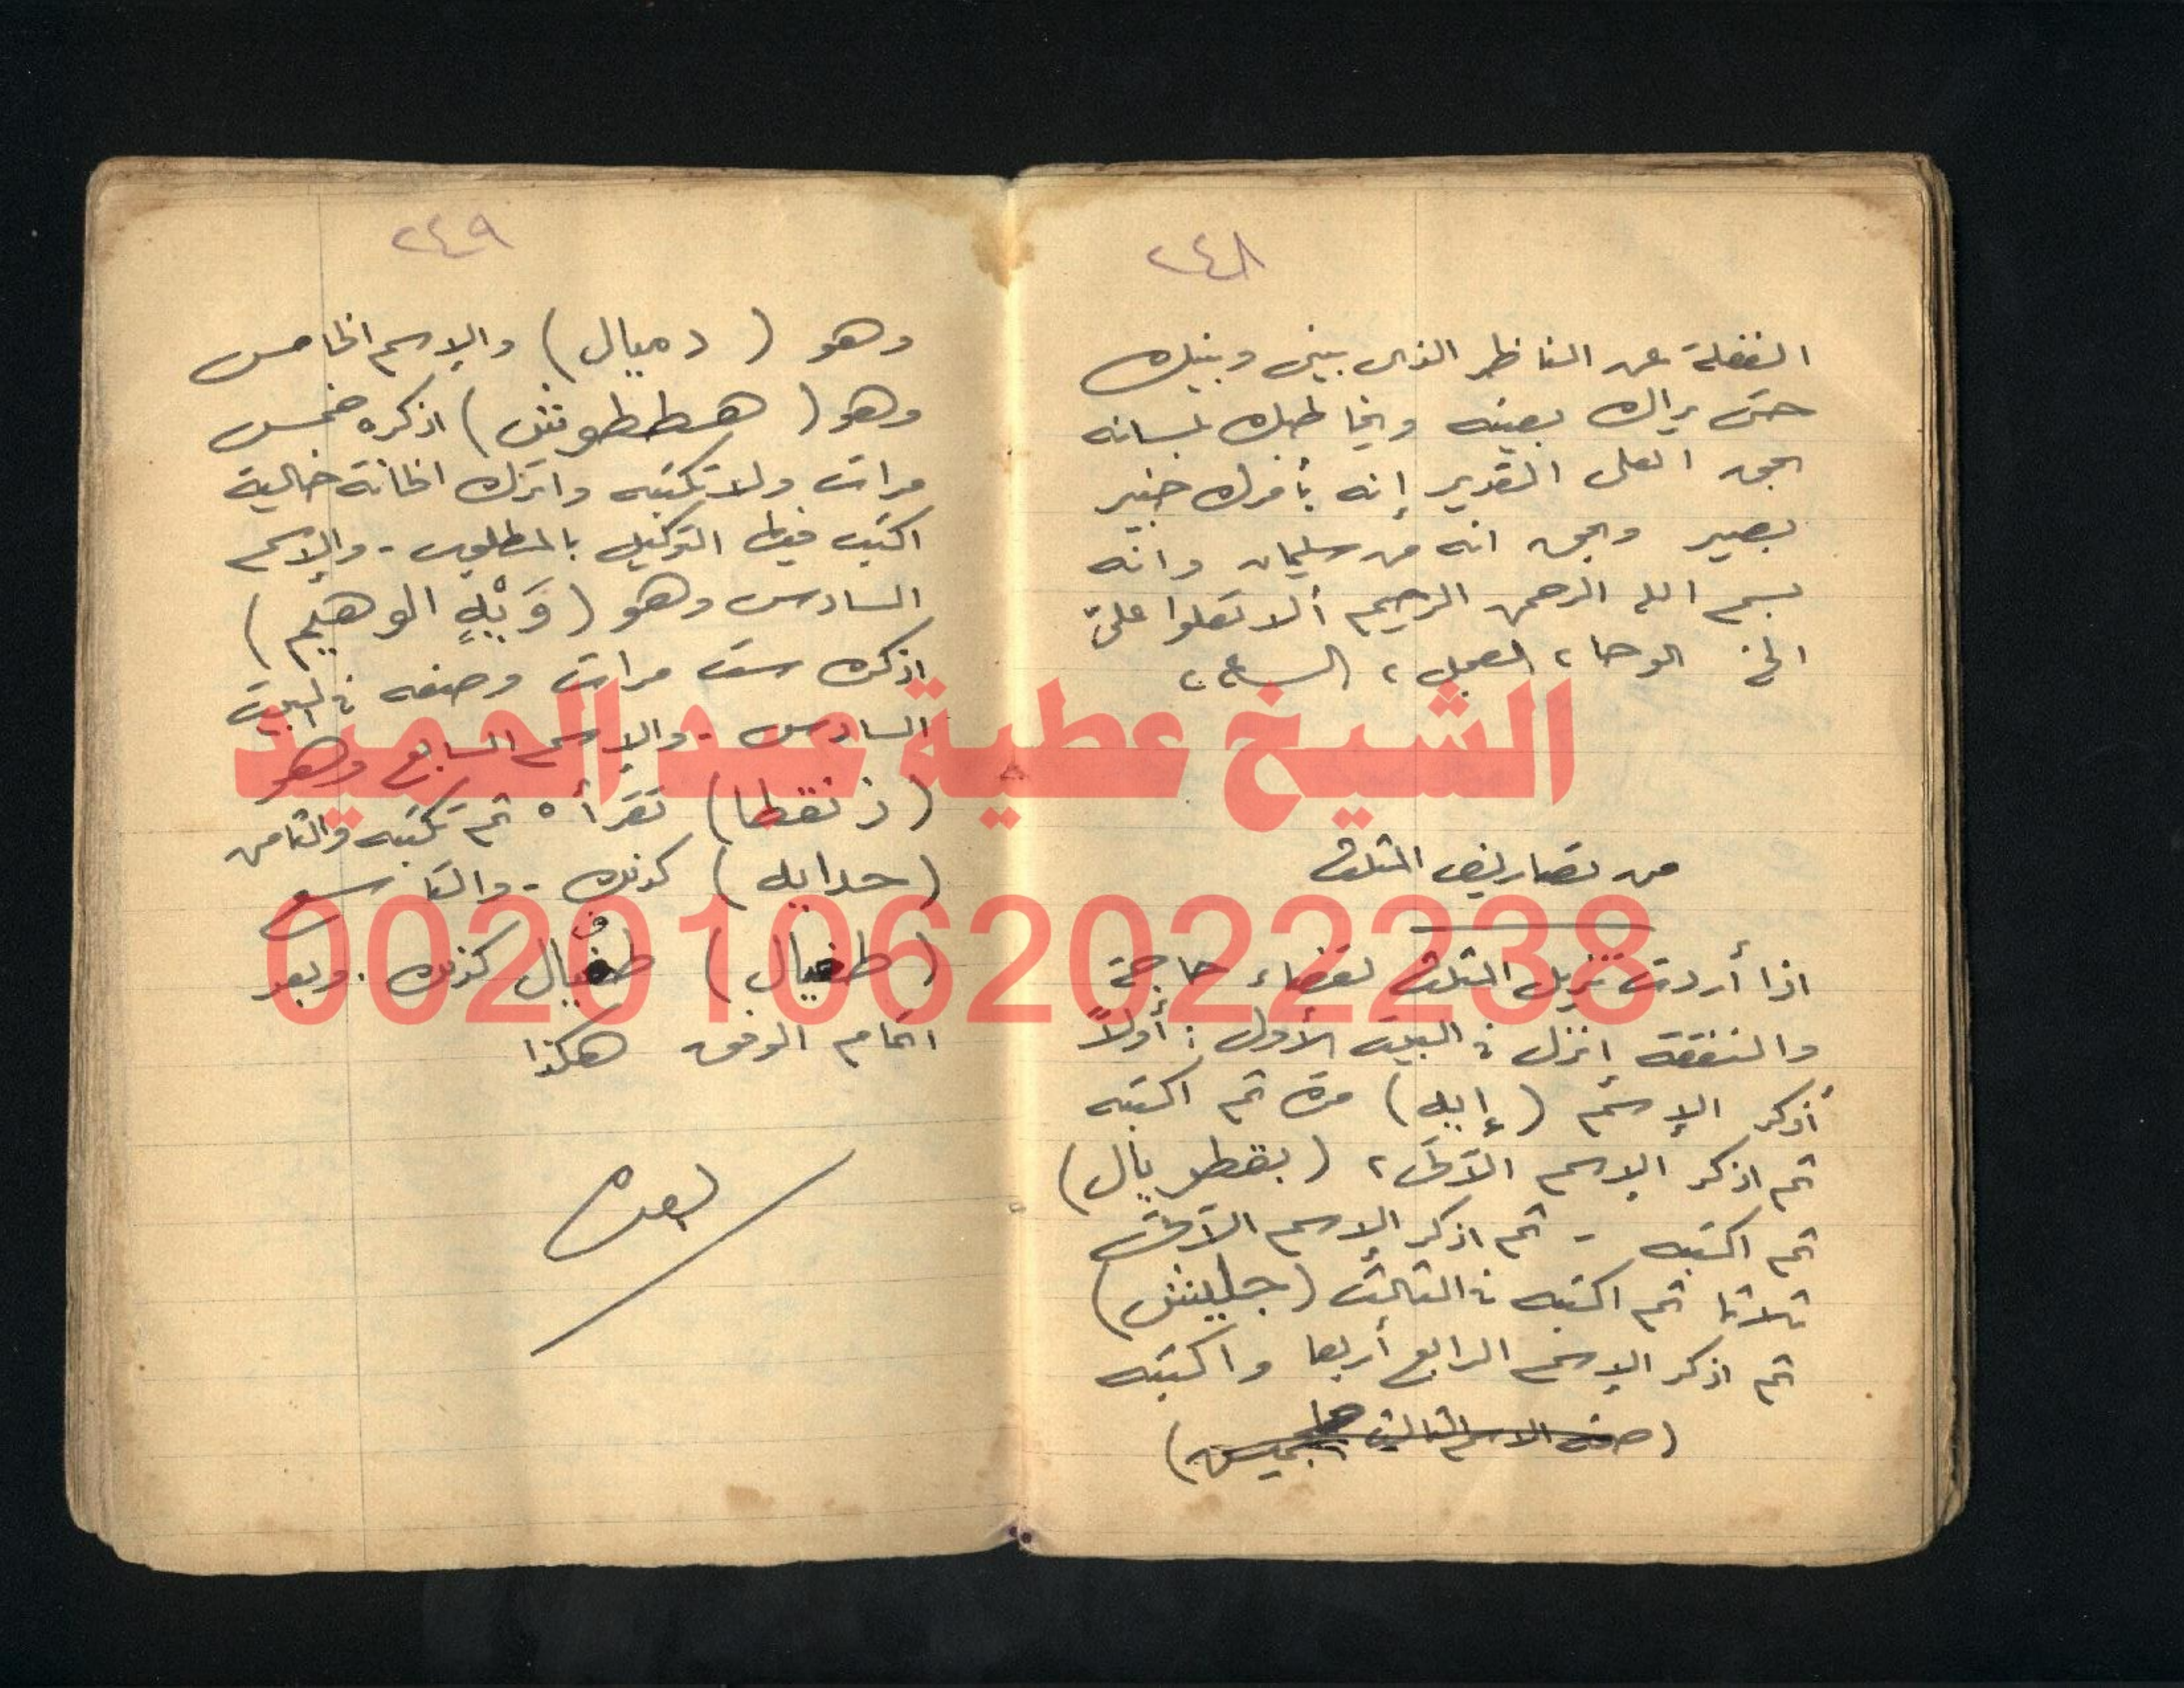 ٢٤٨
الغفلة عن الناظر الذى بينى وبينك
حتى يراك بعينه ويخاطبك بلسانه
بحق العلى القدير إنه بأمرك خبير
بصير وبحق انه من سليمان وانه
بسم الله الرحمن الرحيم ألا تعلوا علىّ
الخ الوحا، العجل، الساعة
من تصاريف المثلث
اذا أردت تنزيل المثلث لقضاء حاجة
والنفقة إنزل فى البيت الأول: أولاً
أذكر الإسم (إيه) مرة ثم اكتبه
ثم اذكر الإسم الآتى، (بقطريال)
ثم اكتبه - ثم اذكر الإسم الآتى
ثلاثا ثم اكتبه فى الثالث (جليش)
ثم اذكر الإسم الرابع أربعا واكتبه
٢٤٩
وهو (دميال) والإسم الخامس
وهو (هططوش) اذكره خمس
مرات ولا تكتبه واترك الخانة خالية
اكتب فيها التوكيل بالمطلوب - والإسم
السادس وهو ( الوهيم)
اذكره ست مرات وضعه فى البيت
السادس - والإسم السابع وهو
(زنقطا) تقرأه ثم تكتبه والثامن
(حدايه) كذلك - والتاسع
(طفيال) طفيال كذلك. وبعد
اتمام الوفق هكذا
الشيخ عطية عبد الحميد
00201062022238